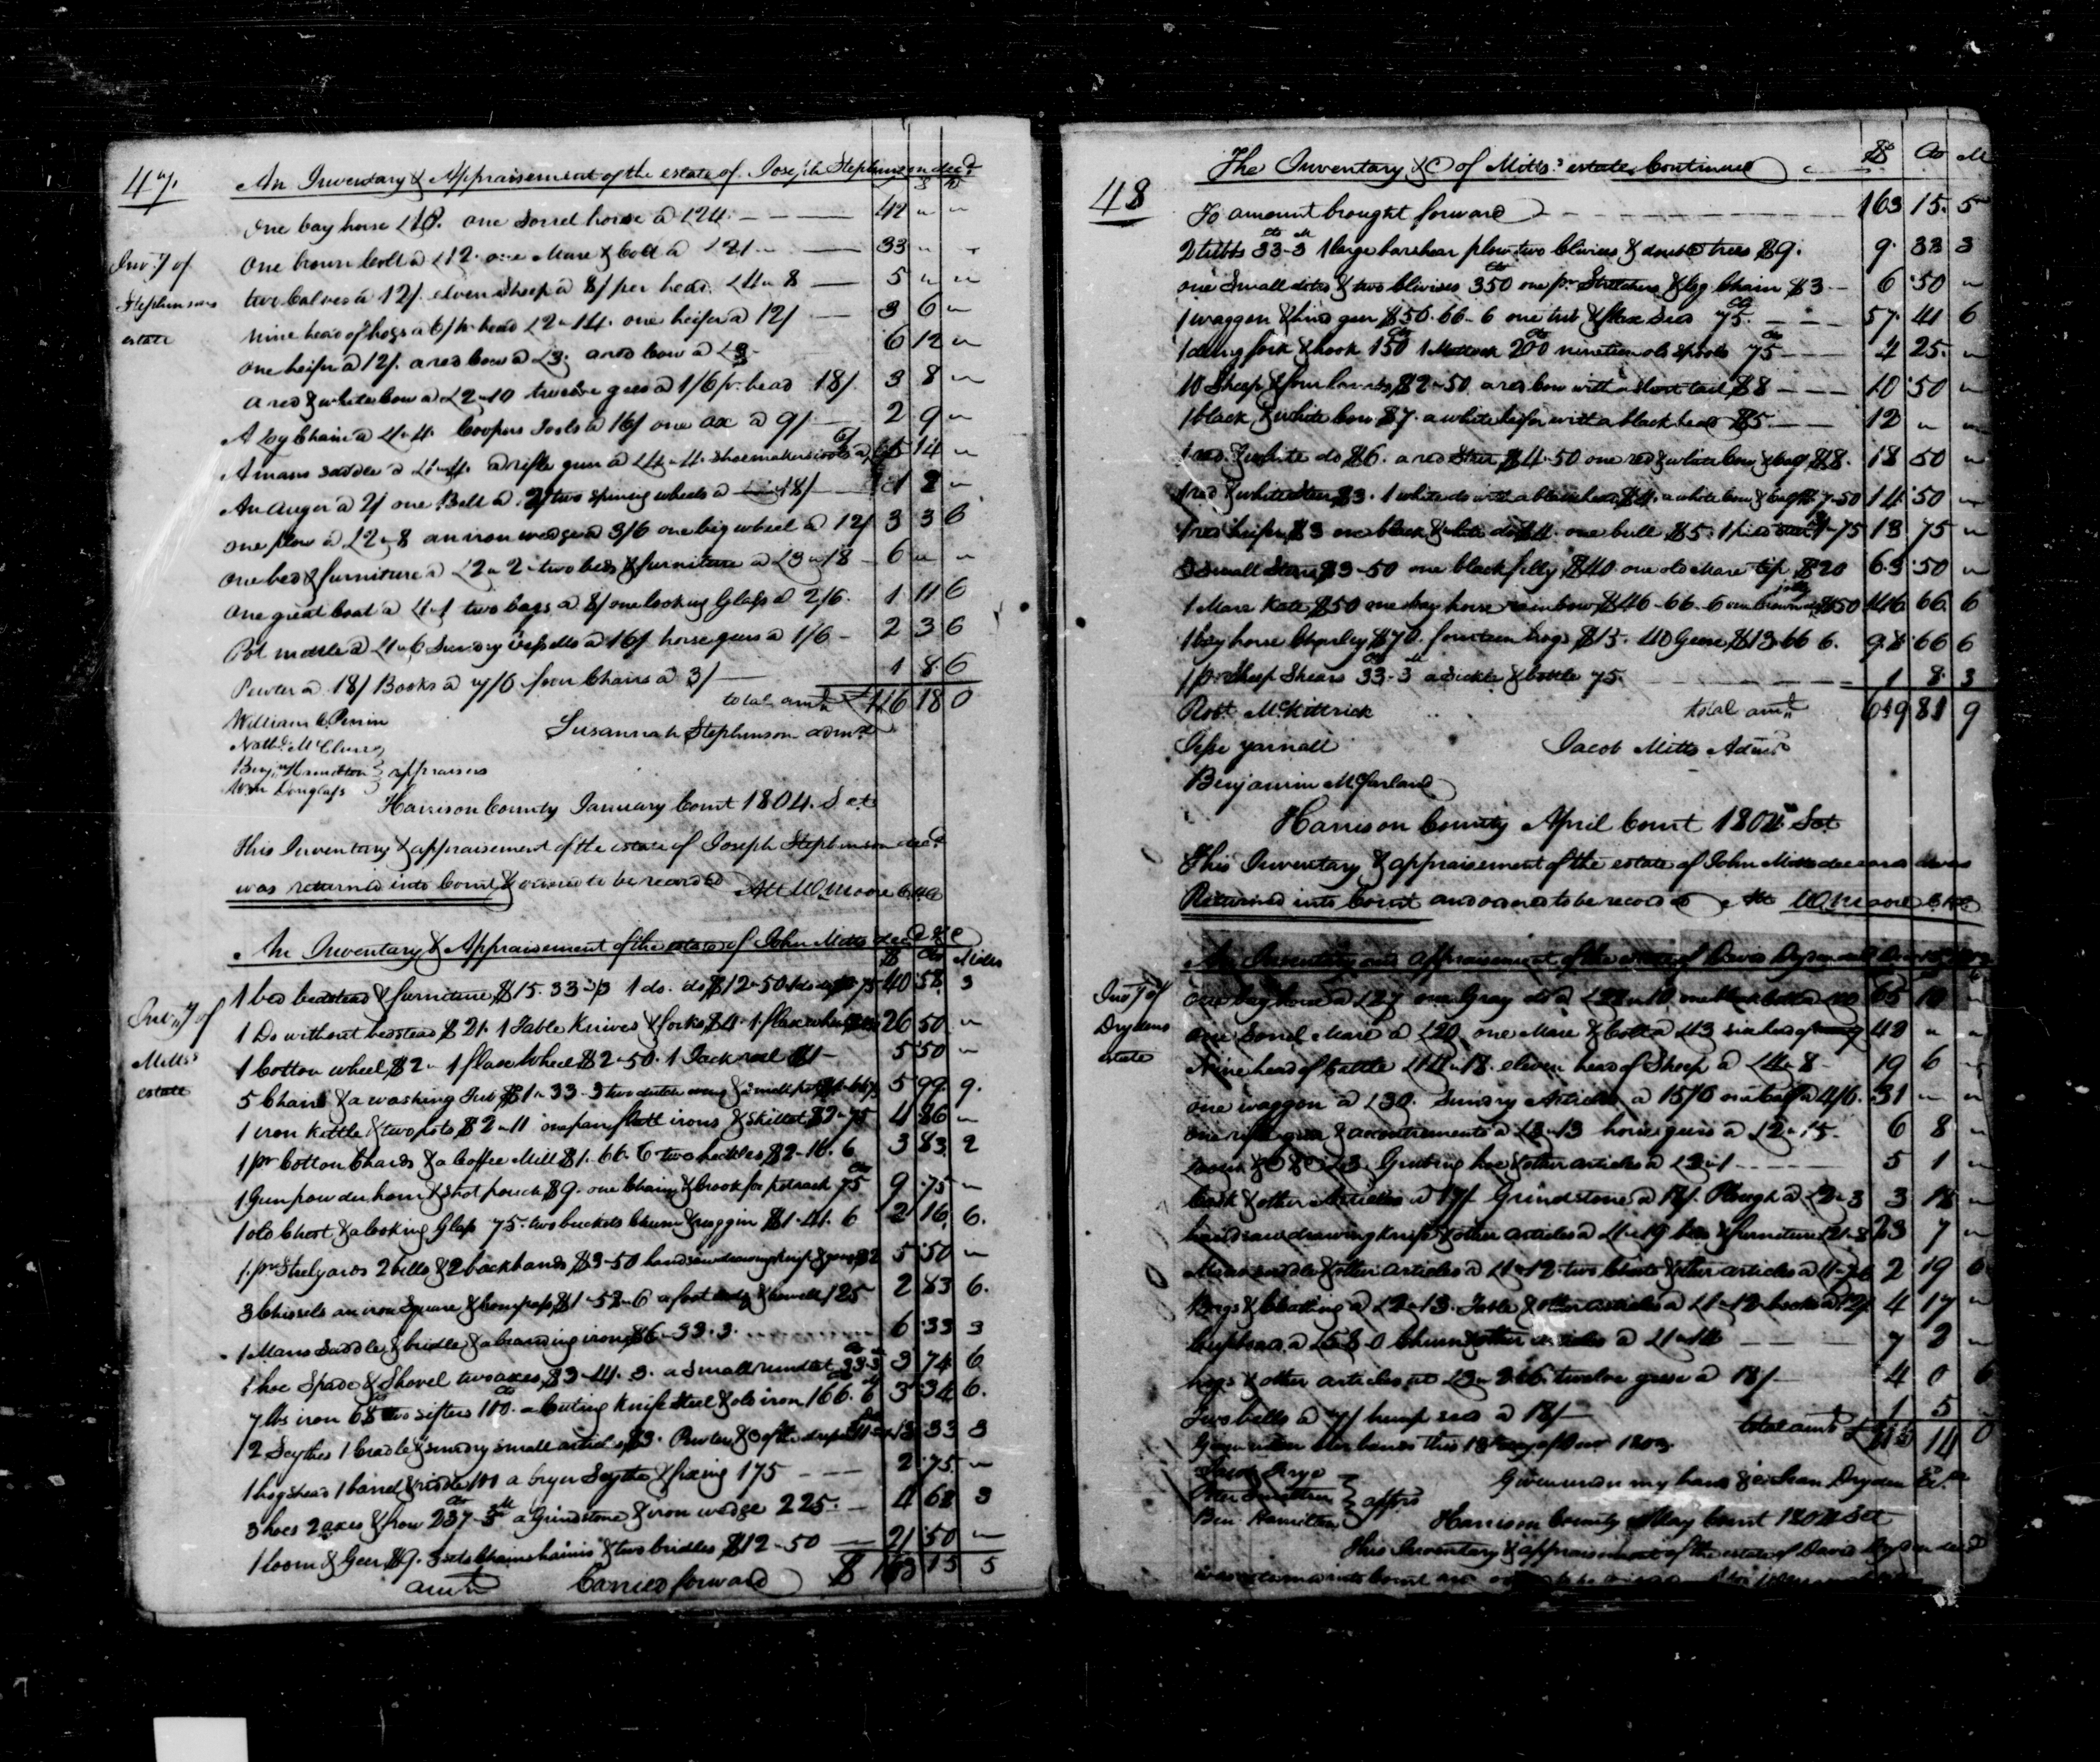 47.
An Inventory & Appraisement of the estate of Joseph Stephenson decd
Invy of
Stephensons
estate
One bay horse £18. one Sorrel horse a £24. 42 " "
One brown Colt a £12. one Mare & Colt a £21 " 33 " "
two Calves a 12/. eleven Sheep a 8/ per head. £4 " 8 5 " "
nine head of hogs a 6/ pr head £2 " 14. one heifer a 12/ 3 6 "
one heifer a 12/. a red Cow a £3. a red Cow a £3 6 12 "
a red & white Cow a £2 " 10 twelve gees a 1/6 pr head 18/. 3 8 "
A log Chain a £1 " 4. Coopers Tools a 16/ one ax a 9/ 2 9 "
A mans saddle a a rifle gun a £4 " 4. Shoemakers tools a 6/ 5 14 "
An auger a 2/ one Bell a 2/ two spinning wheels a 18/ 1 2 "
one plow a £2 " 8 an iron wedge a 3/6 one big wheel a 12/ 3 3 6
One bed & furniture a £2 " 2 " two beds & furniture a £3 " 18 6 " "
One great Coat a £1 " 1 two bags a 8/ one looking Glass a 2/6. 1 11 6
Pot mettle a £1 " 6 Sundry Vessells a 16/ horse geers a 1/6 2 3 6
Pewter a 18/ Books a 7/6 four Chairs a 3/ 1 8 6
total amt £116 18 0
William C. Perrin
Nathl McClure
Benjn Hamilton } appraisers
Wm Douglass
Susannah Stephenson admx
Harrison County January Court 1804. Sct
This Inventory & appraisement of the estate of Joseph Stephenson decd
was returned into Court & ordered to be recorded Att W Moore
An Inventory & Appraisement of the estate of John Mitts decd &C
$ Cts Miles
Invy of
Mitts's
estate
1 bed bedstead & furniture $15. 33 - 3 1 do. do $12 - 50 40 58 3
1 Do without bedstead $21. 1 Table Knives & forks $4. 1 flax wheel 26 50 "
1 Cotton wheel $2 " 1 flax Wheel $2 - 50. 1 Jack reel $1 - 5 50 "
5 Chairs & a washing Tub $1 " 33 - 3 two dutch ovens & small pot 5 99 9.
1 iron Kettle & two pots $2 " 11 one pair flatt irons & Skillet $2 " 75 4 86 "
1 pr Cotton Cards & a Coffee Mill $1. 66. 6 two heckles $2 - 16. 6 3 83 2
1 Gun powder horn & shot pouch $9. one Chain & Crook for potrack 75 9 75 "
1 old Chest & a looking Glass 75. two buckets Churn & noggin $1. 41. 6 2 16 6.
1 pr Stelyards 2 bells & 2 backbands $3 - 50 handsaw drawing knife & 5 50 "
3 Chissels an iron Square & Compass $1 - 58 - 6 a foot & howell 125 2 83 6.
1 Mans Saddle & bridle & a branding iron $6 - 33. 3. 6 33 3
1 hoe Spade & Shovel two axes $3 - 41. 3. a Small rundlet 33 - 3 3 74 6
7 lbs iron 68 two sifters 100. a Cutting Knife Steel & old iron 166. 6 3 34 6.
2 Scythes 1 Cradle & sundry small articles $3. Pewter & 13 33 3
1 hogshead 1 barrel & riddle 100 a bryer Scythe & fixing 175 2 75 "
3 hoes 2 axes & frow 237 - 3 a Grindstone & iron wedge 225. 4 62 3
1 loom & Geer $9. 3 sets Chains hames & two bridles $12 - 50 21 50 "
amt Carried forward $163 15 5
48
The Inventory &C of Mitts's estate Continued $ Cts M
To amount brought forward 163 15. 5
2 tubbs 33 - 3 1 large barshear plow two Clivises & double trees $9. 9. 33 3
one Small ditto & two Clivises 350 one pr Stretchers & log Chain $3 6 50 "
1 waggon & hind geer $56. 66 - 6 one tub & flax Seed 75. 57. 41 6
1 dung fork & hook 150 1 Mattock 200 nineteen old Spools 75 4 25. "
10 Sheep & four lambs $2 - 50. a red Cow with a short tail $8 10 50 "
1 black & white Cow $7. a white heifer with a black head $5. 12 " "
1 red & white do $6. a red Steer $4 - 50 one red & white Cow & Calf $8. 18 50 "
1 red & white Steer $3. 1 white do with a black head $4. a white Cow & Calf $7 - 50 14 50 "
1 red heifer $3 one black & white do $4. one bull $5. 1 pied 1 - 75 13 75 "
3 small Steers $3 - 50 one black filly $40. one old Mare tip $20 63 50 "
1 Mare Kate $50 one bay horse rainbow $46 - 66 - 6 one brown filly $50 146 66. 6
1 bay horse Charley $70. fourteen hogs $15. 40 Geese $13. 66 6. 98 66 6
1 pr Sheep Shears 33 - 3 a Sickle & bottle 75. 1 8. 3
total amt 689 81 9
Robt McKittrick
Jesse Yarnall
Benjamin McFarland
Jacob Mitts Admr
Harrison County April Court 1804. Sct
This Inventory & appraisement of the estate of John Mitts deceased was
Returned into Court and ordered to be recorded Att W Moore
An Inventory and appraisement of the estate of David Dryden
Invy of
Drydens
estate
one bay horse a £27 one Gray do a one black Colt a 65 10 "
one Sorrel Mare a £20 one Mare & Colt a 43 " "
Nine head of Cattle £14 " 18. eleven head of Sheep a £4 " 8 19 6 "
one waggon a £30. Sundry Articles a 15/6 one Calf a 4/6. 31 " "
one rifle gun & accoutrements a £3 " 13 horse geers a £2 " 15. 6 8 "
Grubing hoe & other articles a £2 " 1 5 1 "
& other Articles a 17/ Grindstone a Plough a £2 " 3 3 18 "
handsaw drawing knife & other articles a £1 " 19 beds & furniture 23 7 "
Mans saddle & other articles a £1 " 12 two Chests & other articles a 2 19 6
Bags & Cloathing a £2 " 13. Table & other articles a £1 " 12 books a 12/ 4 17 "
Cupboard a £5 8 0 Churn & other articles a 7 2 "
hogs & other articles at twelve geese a 18/ 4 0 6
Two bells a 7/ hemp seed a 18/ 1 5 "
total amt £215 14 0
Given under our hands this day of 1803.
} apprs
Ben Hamilton
Given under my hand Dryden
Harrison County May Court 1804 Sct
This Inventory & appraisement of the estate of David Dryden decd